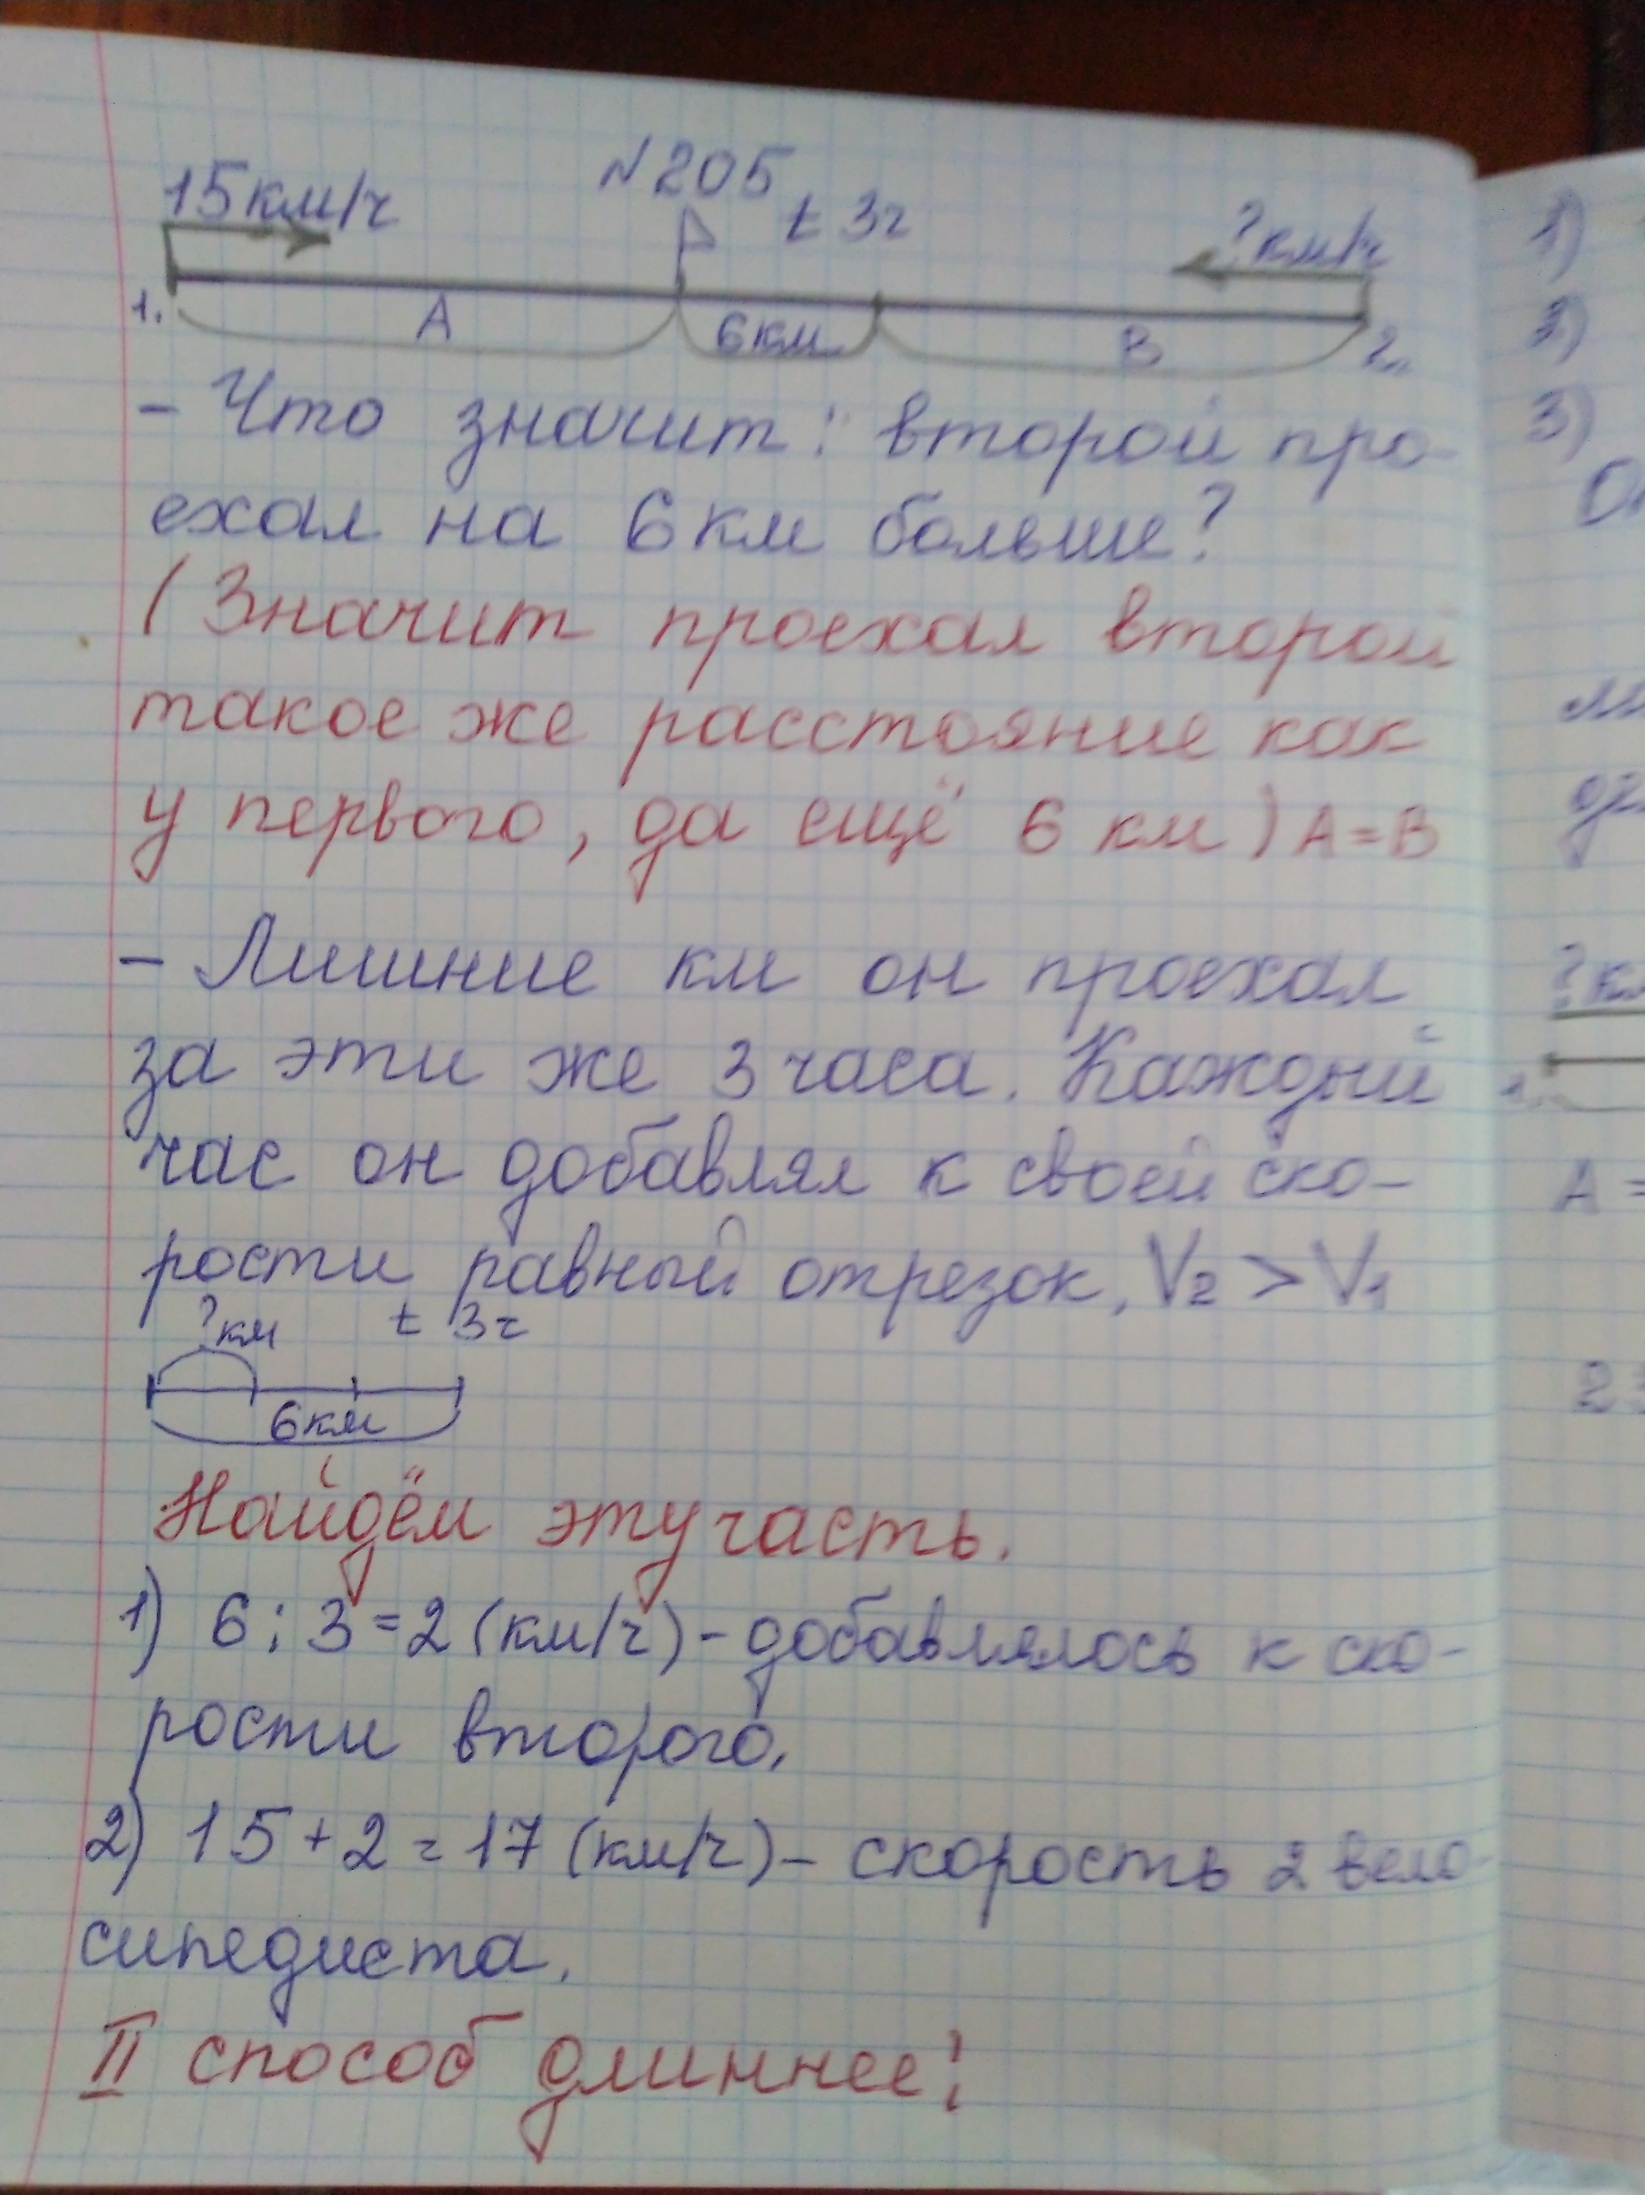 №205
15км/ч
t 3ч
?км/ч
1.
А
6км
В
2.
- Что значит: второй про-
ехал на 6 км больше?
(Значит проехал второй
такое же расстояние как
у первого, да ещё 6 км) А=В
- Лишние км он проехал
за эти же 3 часа. Каждый
час он добавлял к своей ско-
рости равный отрезок, V2 > V1
?км
t 3ч
6км
Найдём эту часть.
1) 6:3=2 (км/ч) - добавлялось к ско-
рости второго.
2) 15+2=17 (км/ч) - скорость 2 вело-
сипедиста.
II способ длиннее!
1)
2)
3)
?км
А =